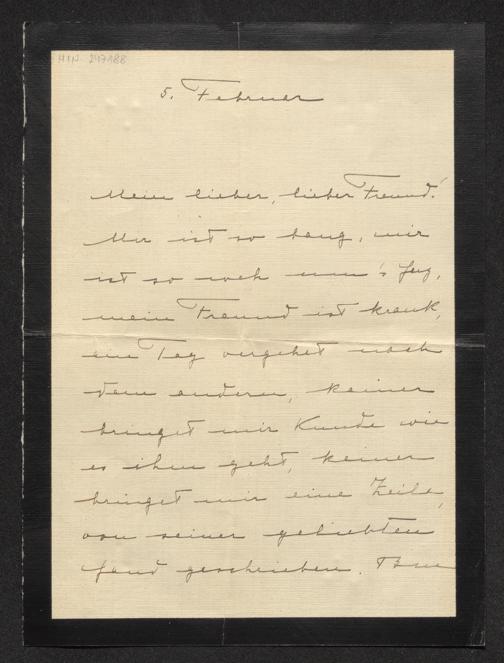 H.I.N. 247188
5. Februar
Mein lieber, lieber Freund!
Mir ist so bang, mir
ist so weh um's Herz,
mein Freund ist krank,
ein Tag vergehet nach
dem anderen, keiner
bringet mir Kunde wie
es ihm geht, keiner
bringet mir eine Zeile,
von seiner geliebten
Hand geschrieben.